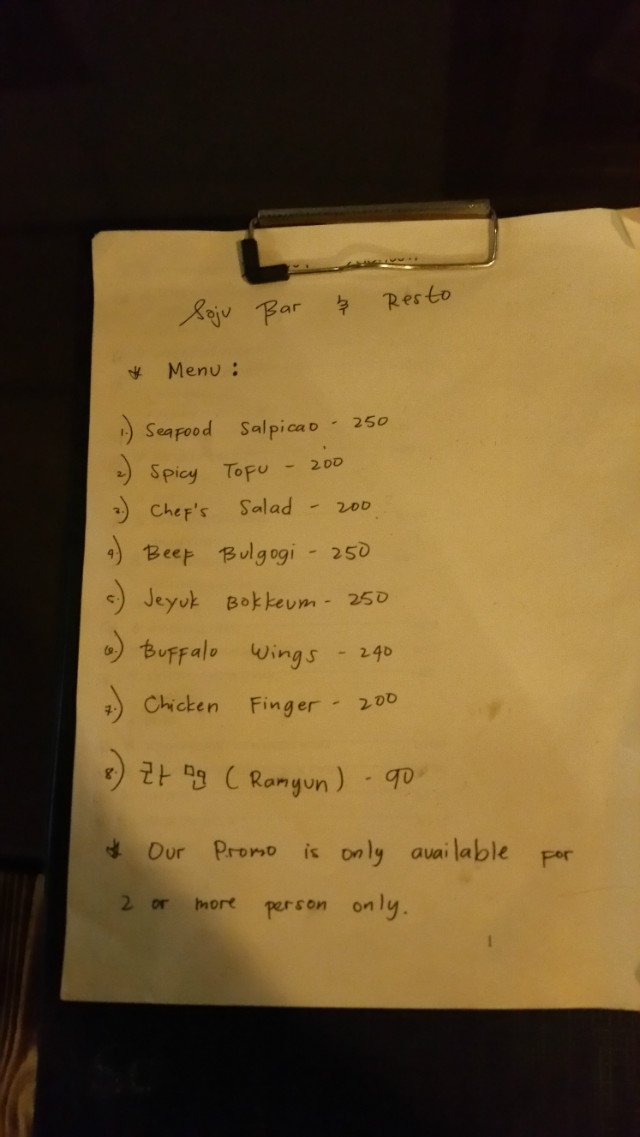 Soju Bar & Resto
* Menu :
1.) Seafood Salpicao - 250
2.) Spicy Tofu - 200
3.) Chef's Salad - 200
4.) Beef Bulgogi - 250
5.) Jeyuk Bokkeum - 250
6.) Buffalo Wings - 240
7.) Chicken Finger - 200
8.) 라면 (Ramyun) - 90
* Our Promo is only available for
2 or more person only.